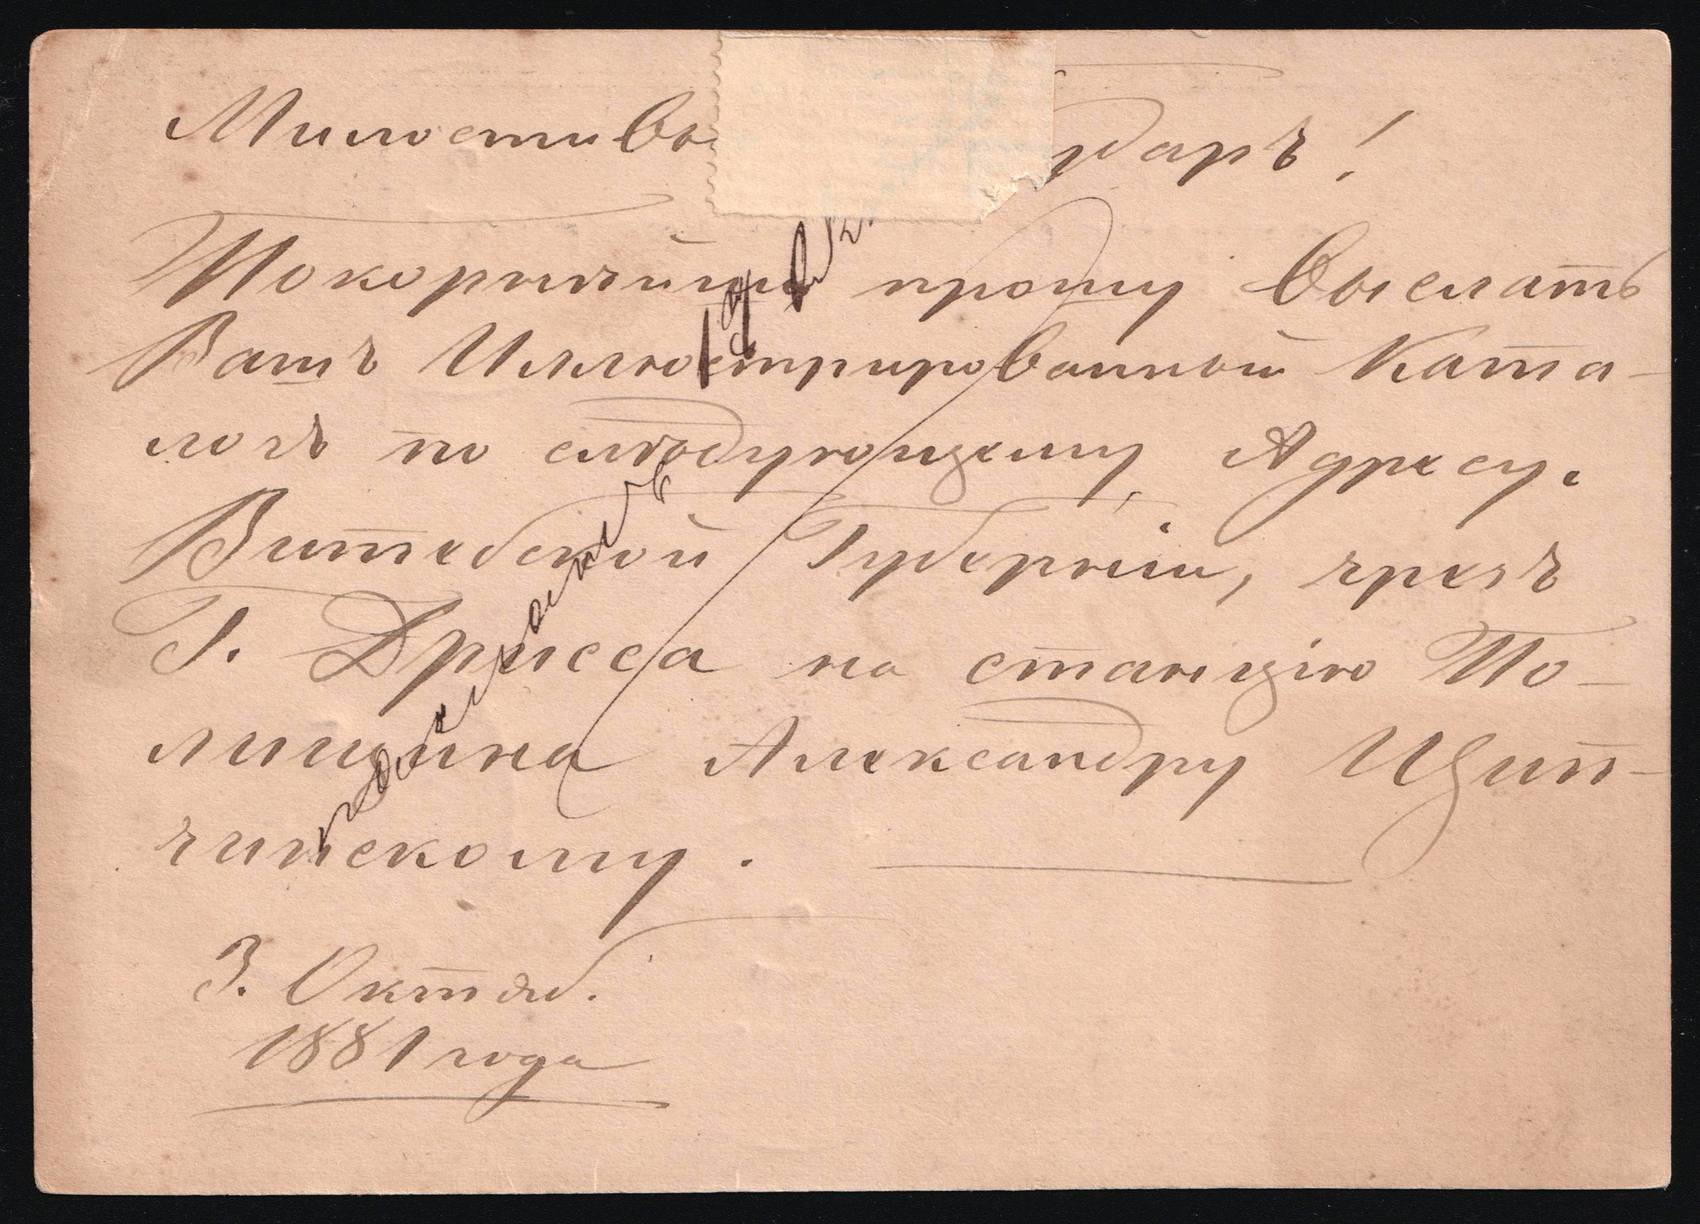 Милостивы дарь!
Покорнѣйше прошу выслать
Вашъ Иллюстрированный Ката-
логъ по слѣдующему Адресу.
Витебской Губерніи, чрезъ
Г. Дрисса на станцію По-
лищино Александру Щит-
чинскому.
3. Октяб.
1881 года